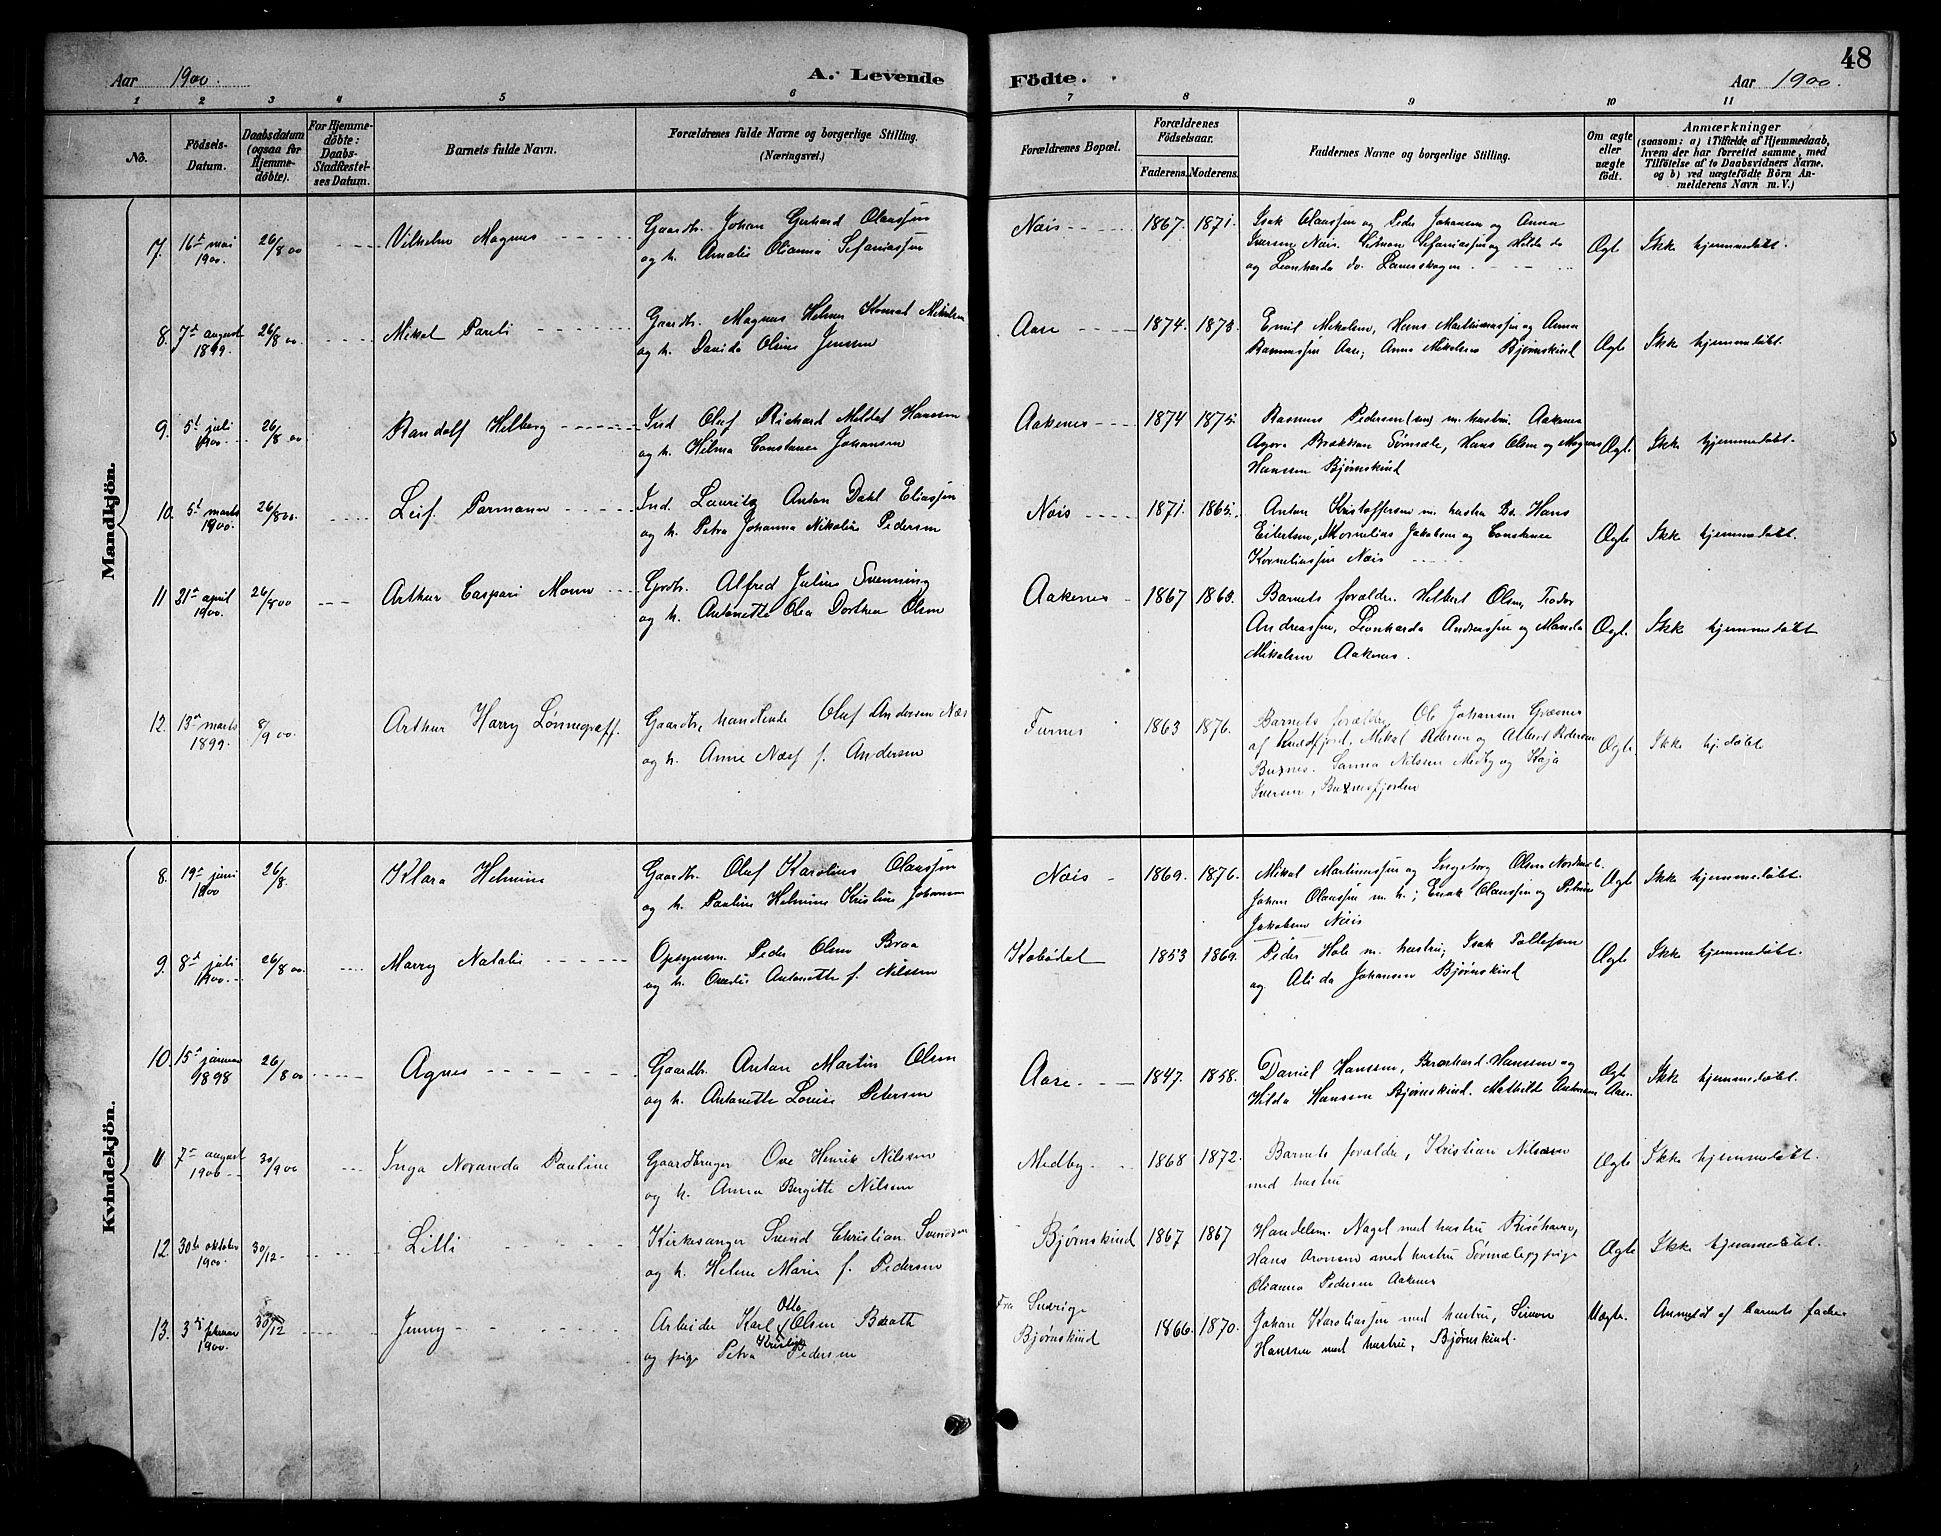 48
Aar 1900. A. Levende Födte. Aar 1900.
1 2 3 4 5 6 7 8 9 10 11
No. Födsels-Datum. Daabsdatum (ogsaa for Hjemmedöbte). For Hjemmedöbte: Daabs-Stadfæstelses Datum. Barnets fulde Navn. Forældrenes fulde Navne og borgerlige Stilling. (Næringsvei.) Forældrenes Bopæl. Forældrenes Födselsaar. Faderens. Moderens. Faddernes Navne og borgerlige Stilling. Om ægte eller uægte födt. Anmærkninger (saasom: a) i Tilfælde af Hjemmedaab, hvem der har forrettet samme, med Tilföielse af to Daabsvidners Navne, og b) ved uægtefödte Börn Anmelderens Navn m. V.)
Mandkjön.
7. 16d mai 1900. 26/8 00 Vilhelm Magnus Gaardb. Johan Gerhard Olaussen
og h. Amalie Olianna Sefaniassen
Nois 1867. 1871. Isak Olaussen og Peder Johansen og Anna
Iversen Nois. Simon Sefaniassen og Hilda do
og Leonharda do.
Ægte Ikke hjemmedöbt.
8. 7d august 1899. 26/8 00 Mikal Pareli Gaardb. Magnus Helmer Konrad Mikalsen
og h. Davida Oline Jensen
Aase 1874. 1873. Emil Mikalsen, Hans Martinussen og Anna
Rasmussen Aase; Anna Mikalsen Bjørnskind
Ægte Ikke hjemmedöbt.
9. 5d juli 1900. 26/8 00 Randolf Hilberg Ind. Oluf Richard Meldal Hansen
og h. Helma Constance Johansen
Aakenes 1874 1875. Rasmus Pedersen m. hustru Aakenes
Hans Olsen og Magnus
Hanssen Bjørnskind
Ægte Ikke hjemmedöbt.
10. 5d marts 1900. 26/8 00. Leif Parmann Ind. Lauritz Anton Dahl Eliassen
og h. Petra Johanna Nikoline Pedersen
Nois 1871. 1865. Anton Kristoffersen m. hustru Hans
Eilertsen, Kornelius Jakobsen og Constance
Korneliussen Nois
Ægte Ikke hjemmedöbt.
11 21d april 1900. 26/8 00 Arthur Caspari Monn Grdb. Alfred Julius Svenning
og h. Antonette Olea Dorthea Olsen
Aakenes 1867 1863. Barnets forældre. Hilbert Olsen, Teodor
Andreassen, Leonharda Andreassen og Manda
Mikalsen Aakenes.
Ægt. Ikke hjemmedöbt
12. 13de marts 1899. 8/9 00. Arthur Harry Lønnegraff. Gaardb., handlende Oluf Andersen Næs
og h. Anne Næss f. Andersen
Furnes 1863 1876. Barnets forældre, Ole Johansen
af Kvædfjord, Mikal Pedersen og Albert Pedersen
Buxnes. Sanna Nilsen Medby og Kaja
Iversen, Buxnesfjorden
Ægte Ikke hj. döbt
Kvindekjön.
8. 19de juni 1900 26/8. Klara Helmine Gaardb. Oluf Karolius Olaussen
og h. Pauline Helmine Kristine Johansen
Nois 1869. 1876. Mikal Martinussen og Ingeborg Olsen
Johan Olaussen m. h.; Enok Olaussen og Petrine
Jakobsen Nois
Ægte Ikke hjemmedöbt.
9. 8d juli 1900. 26/8 00. Marry Natalie Opsynsm. Peder Olsen Braa
og h. Antonette f. Nilssen
Kobedal 1853 1860. Peder Hole m. hustru, Isak Tollefsen
og Alida Johansen Bjørnskind
Ægte Ikke hjemmedöbt.
10. 15d januar 1898 26/8 00 Agnes Gaardb. Anton Martin Olsen
og h. Antonette Lovise Petersen
Aase. 1847. 1858. Daniel Hanssen, Bernhard Hanssen og
Hilda Hanssen Bjørnskind. Mathilde Antonsen Aase.
Ægte Ikke hjemmedöbt.
11 7de august 1900 30/9 00 Inga Noranda Pauline Gaardbruger Ove Henrik Nilssen
og h. Anna Bergitte Nilsen
Medby. 1868 1872. Barnets forældre, Kristian Nilssen
med hustru
Ægte Ikke hjemmedöbt.
12 30te oktober 1900. 30/12 Lilli Kirkesanger Svend Christian Svendsen
og h. Helene Marie f. Pedersen
Bjørnskind 1867 1867 Handelsm. Nagel med hustru Risöhavn,
Hans Aronsen med hustru pige
Olianna Pedersen Aakenes
Ægte Ikke hjemmedöbt.
13. 3d februar 1900. 30/12 Jenny Arbeider Karl Otto Olsen Baath
og pige Petra Kristine Pedersen
Fra Sverige
Bjørnskind 1866. 1870. Johan Karoliussen med hustru, Simon
Hanssen med hustru, Bjørnskind.
Uægte. Anmeldt af barnets fader